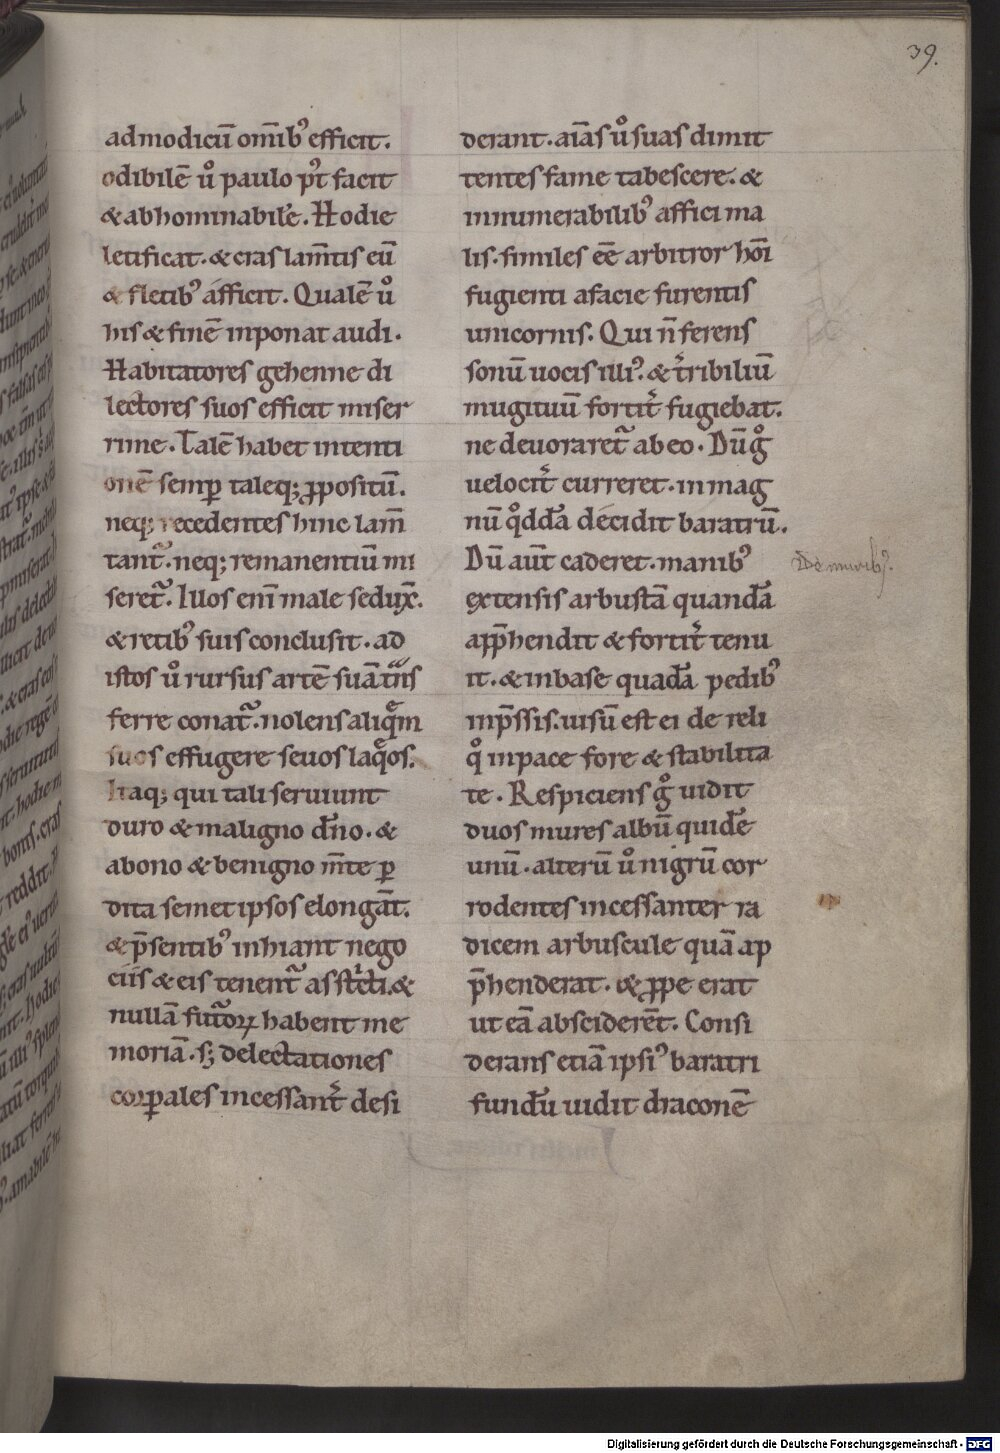 39.
admodicū om̄ibꝰ efficit.
odibilē ů paulo pꝰt facit
& abhominabilē. Hodie
letificat. & cras lam̄tis eū
& fletibꝰ afficit. Qualē ů
his & finē inponat audi.
Habitatores gehenne di
lectores suos efficit miser
rime. Talē habet intenti
onē semꝑ taleq; ꝓpositū.
neq; recedentes hinc lam̄
tant᷑. neq; remanentiū mi
seret᷑. Illos eni̅ male sedux̄.
& retibꝰ suis conclusit. ad
istos ů rursus artē suā tn̄s
ferre conat᷑. nolens aliqͤm
suos effugere seuos laqͤos.
Itaq; qui tali seruiunt
duro & maligno dn̄o. &
abono & benigno m̄te ꝑ
dita semetipsos elongāt.
& p̄sentibꝰ inhiant nego
ciis & eis tenent᷑ asst̓cti. &
nullā fut᷑oꝝ habent me
moriā. sꝫ delectationes
corꝑales incessant̓ desi
derant. aīas ů suas dimit
tentes fame tabescere. &
innumerabilibꝰ affici ma
lis. similes eē arbitror hōi
fugienti afacie furentis
unicornis. Qui n̄ ferens
sonū uocis illiꝰ. & t̓ribiliū
mugituū fortit̓ fugiebat.
ne deuoraret᷑ ab eo. Dū g̊
uelocit̓ curreret. in mag
nū qͦddā decidit baratrū.
Dū aūt caderet. manibꝰ
De muribꝰ.
extensis arbustā quandā
app̄hendit & fortit̓ tenu
it. & inbase quadā pedibꝰ
inp̄ssis. uisū est ei de reli
qͦ inpace fore & stabilita
te. Respiciens g̊ uidit
duos mures albū quidē
unū. alterū ů nigrū cor
rodentes incessanter ra
dicem arbuscule quā ap
p̄henderat. & ꝓpe erat
ut eā absciderēt. Consi
derans etiā ipsiꝰ baratri
fundū uidit draconē
Digitalisierung gefördert durch die Deutsche Forschungsgemeinschaft - DFG